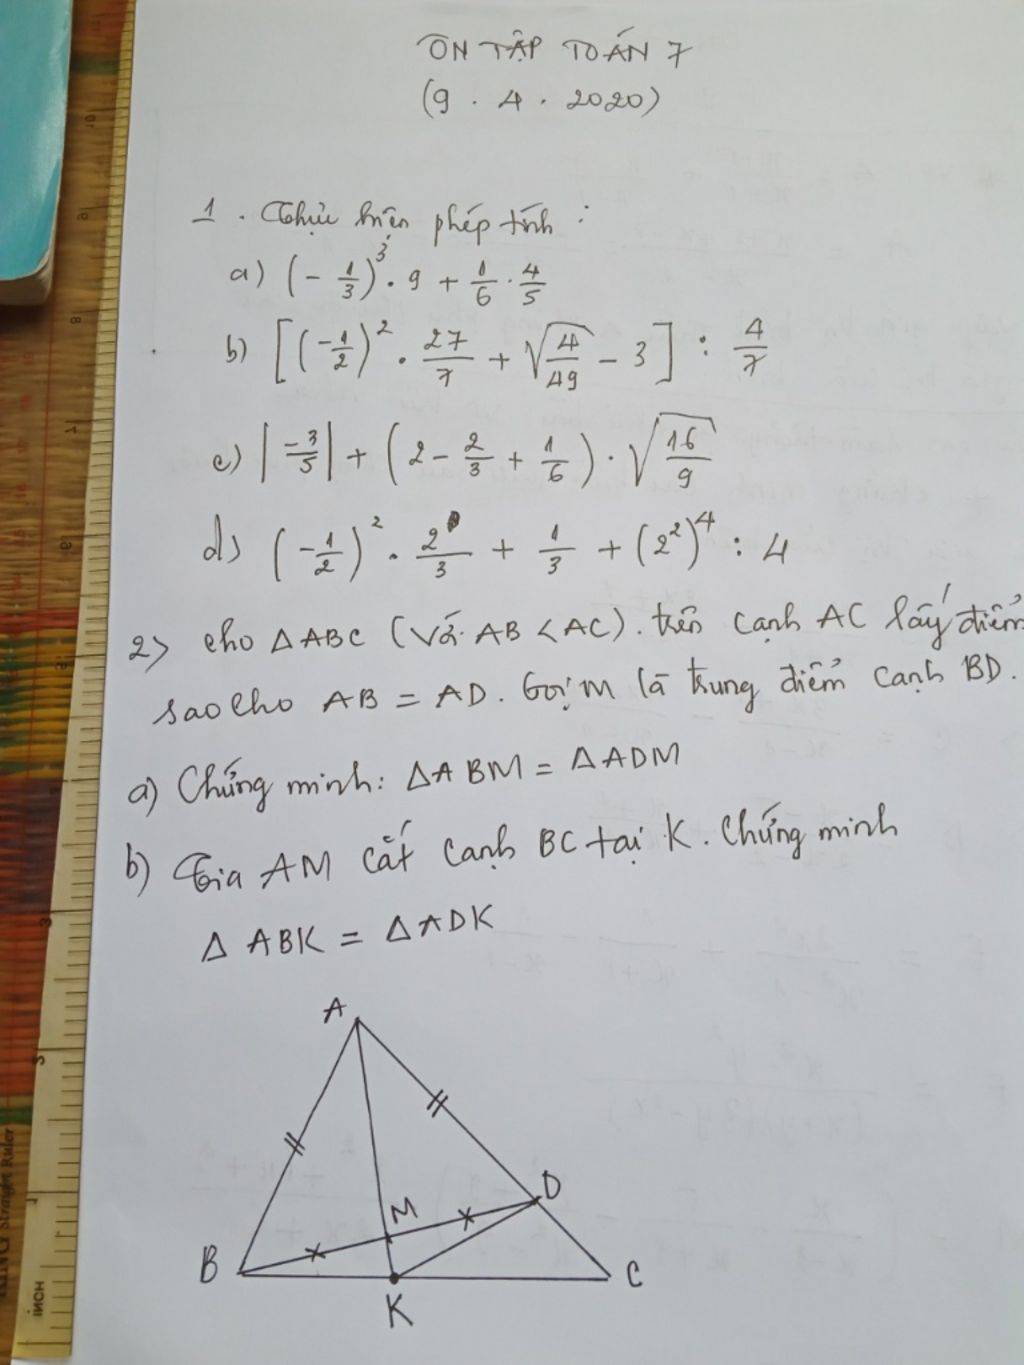 ÔN TẬP TOÁN 7
(9 . 4 . 2020)
1 . Thực hiện phép tính :
a) (- 1/3)^3 . 9 + 1/6 . 4/5
b) [(-1/2)^2 . 27/7 + √(4/49) - 3] : 4/7
c) |-3/5| + (2 - 2/3 + 1/6) . √(16/9)
d) (-1/2)^2 . 2/3 + 1/3 + (2^2)^4 : 4
2) cho Δ ABC (Với AB < AC). trên cạnh AC lấy điểm
sao cho AB = AD. Gọi M là trung điểm cạnh BD.
a) Chứng minh: ΔABM = ΔADM
b) Tia AM cắt cạnh BC tại K. Chứng minh
Δ ABK = ΔADK
A
D
M
B
C
K
INCH
Straight Ruler